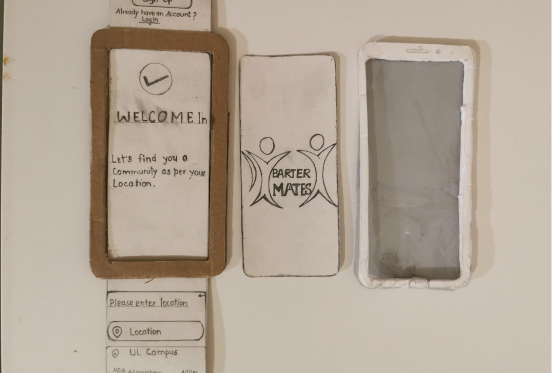 Sign Up
Already have an Account?
Login
WELCOME In
Let's find you a
Community as per your
Location.
BARTER
MATES
Please enter location
Location
UL Campus